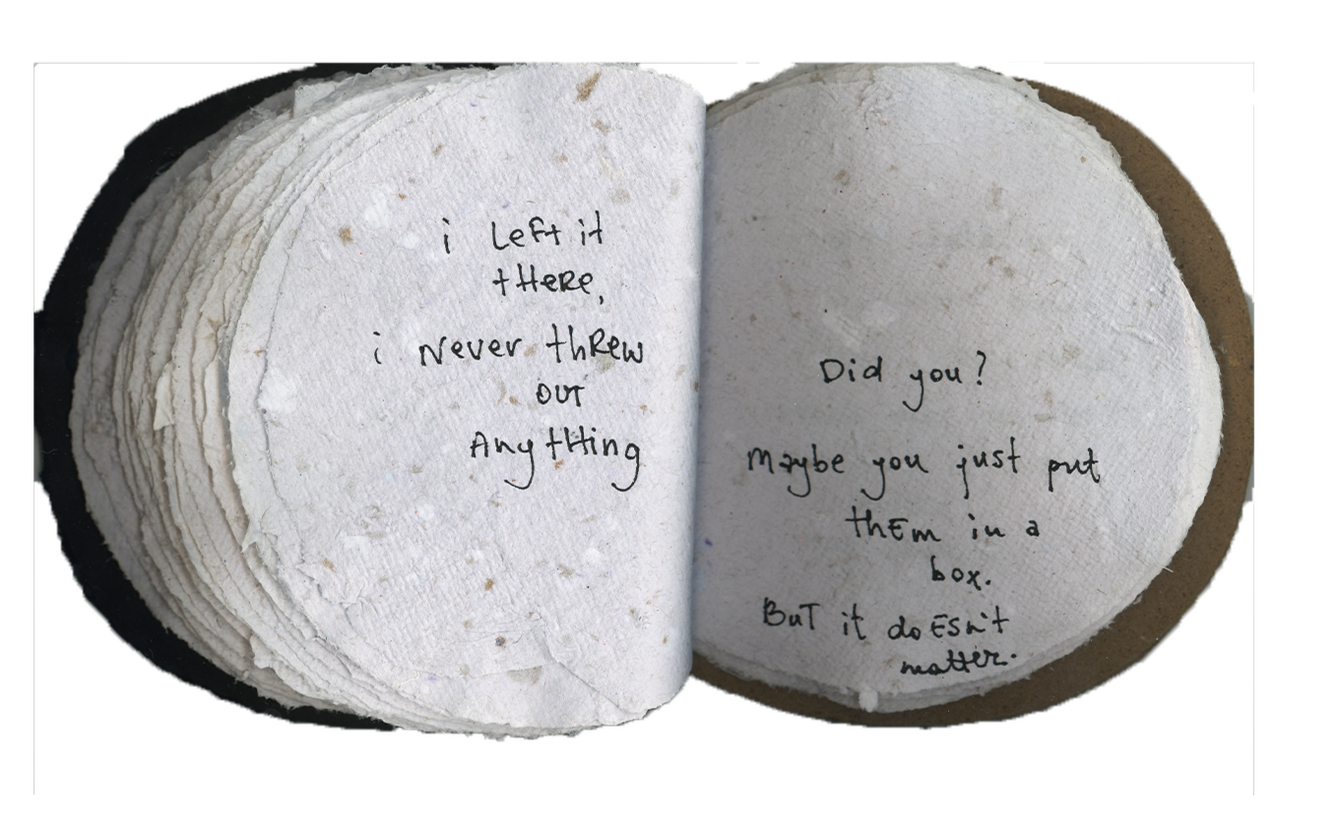 i Left it
tHeRe,
i Never thRew
out
AnytHing
Did you?
maybe you just put
thEm in a
box.
BuT it doEsn't
matter.